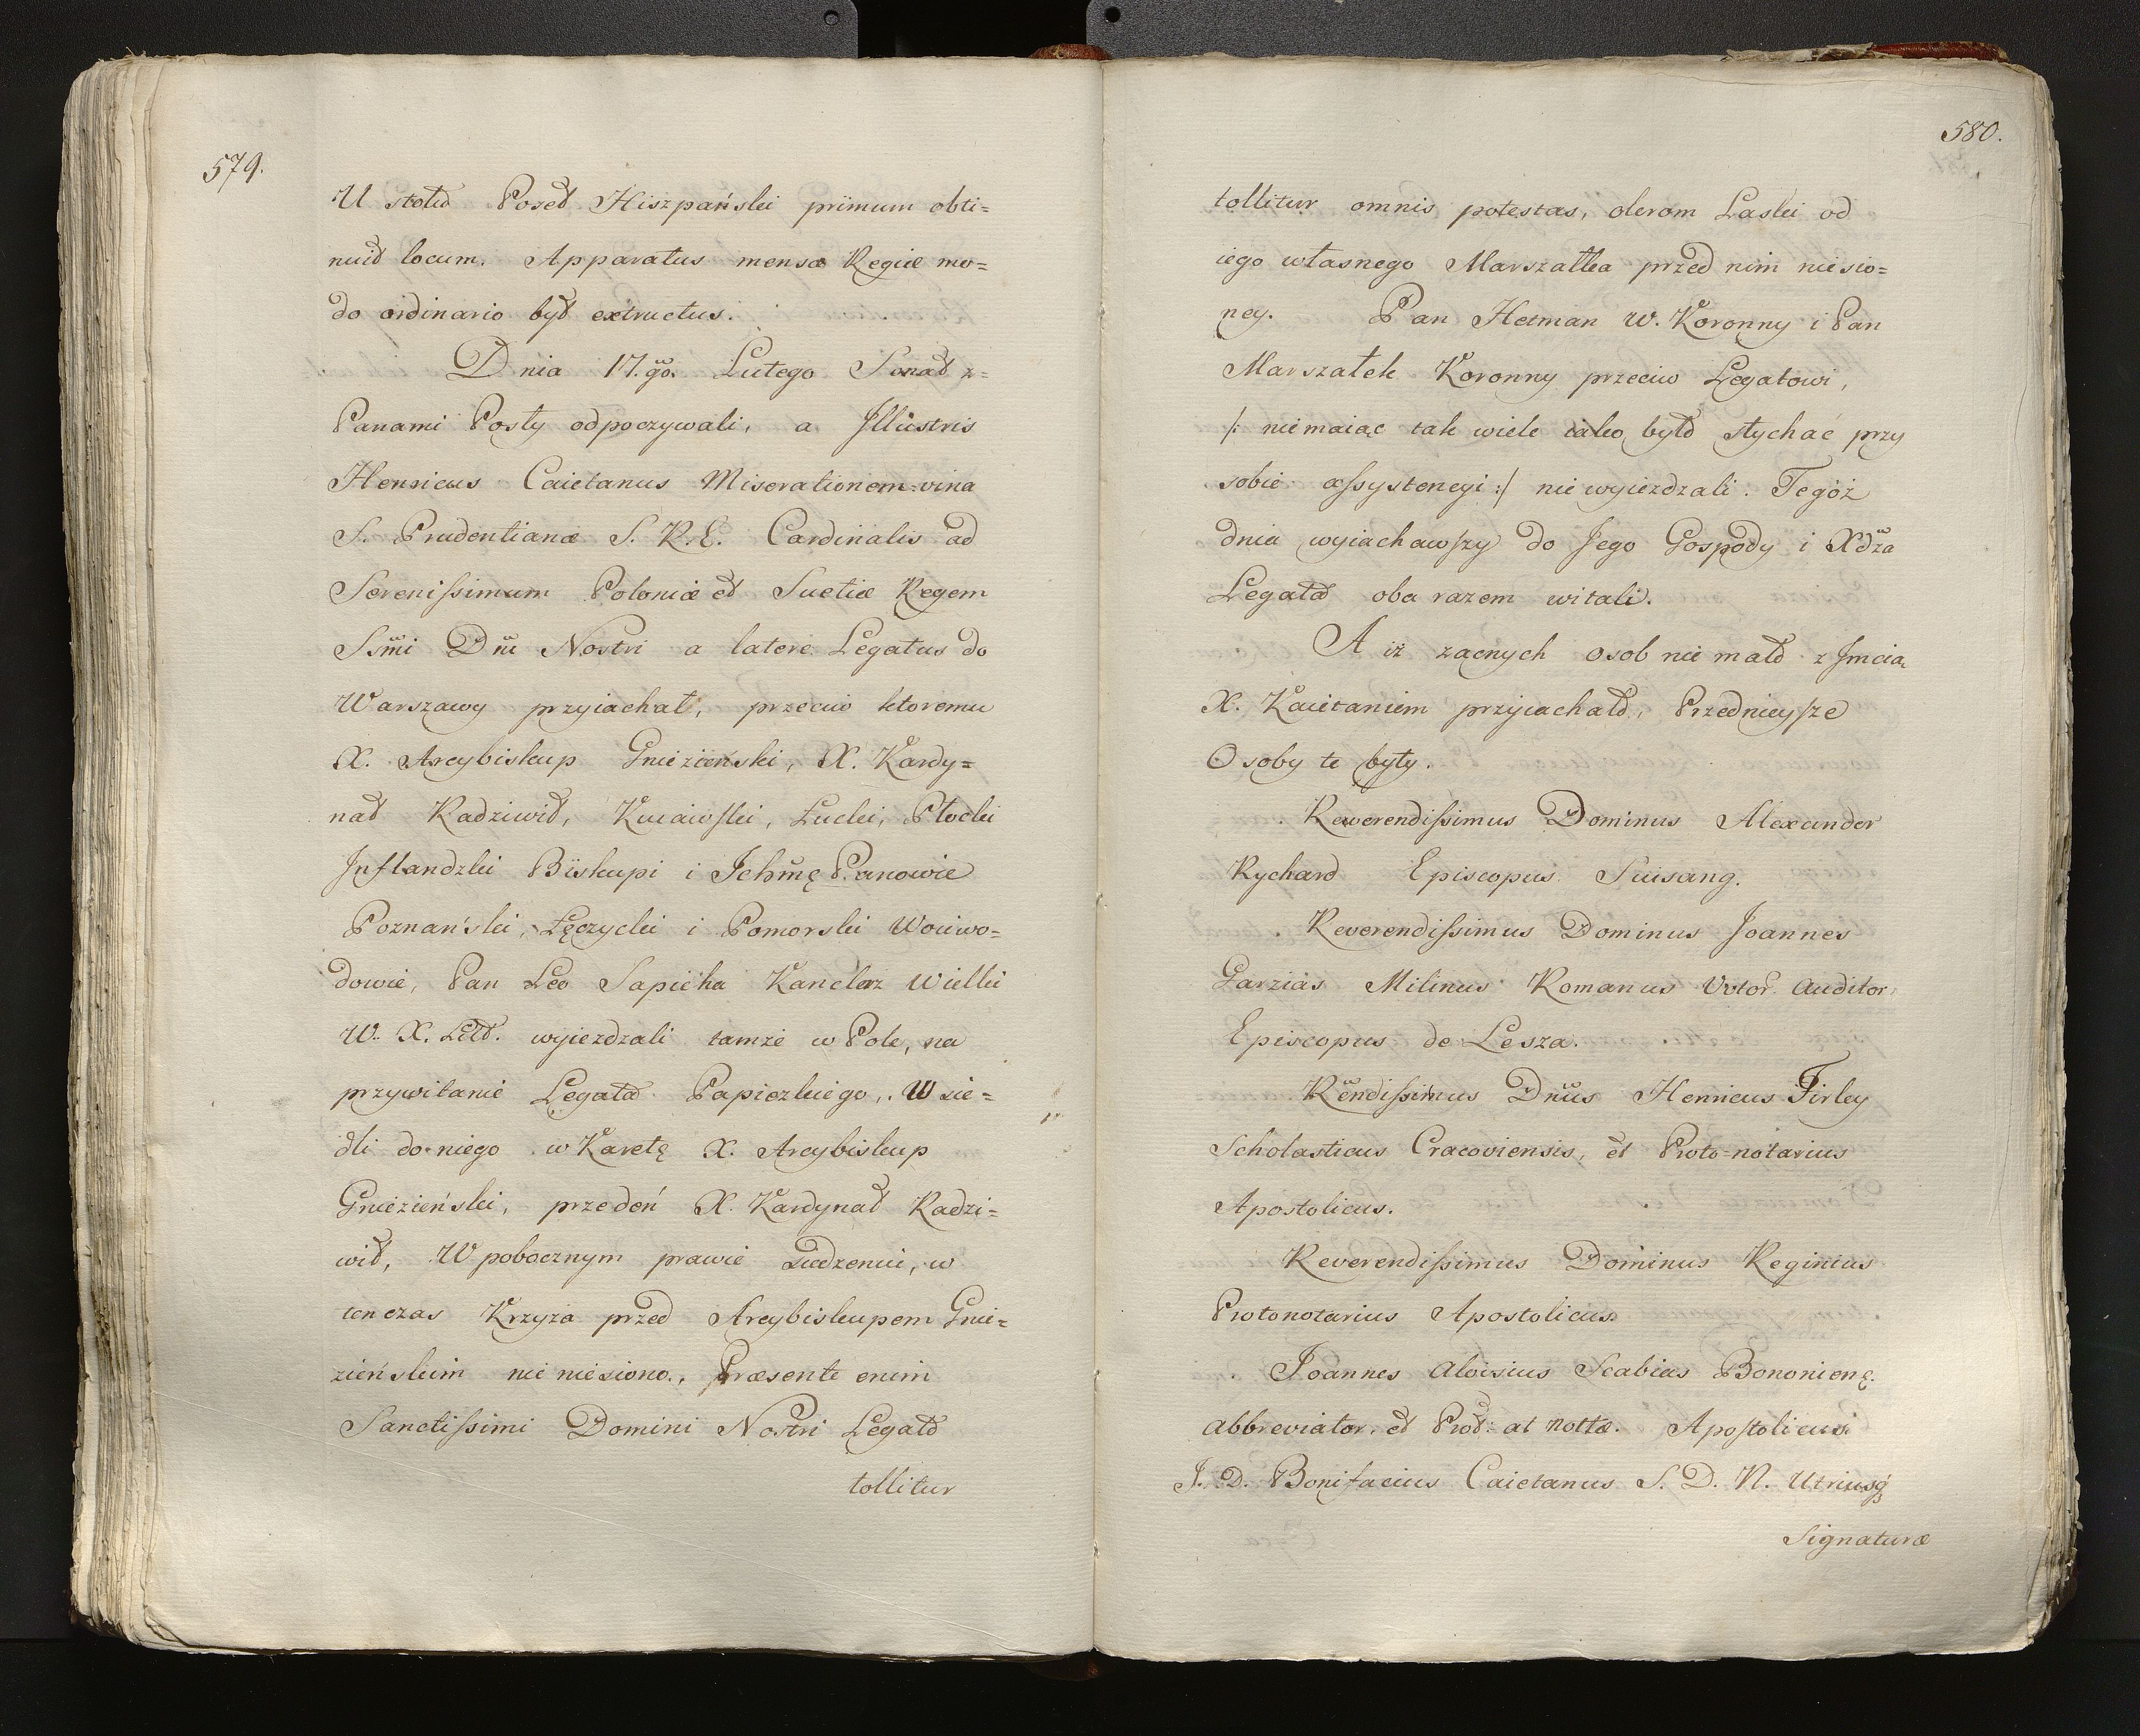 579.
U stołu Poseł Hiszpański primum obti=
nuid locum. Apparatus mensæ Regiæ mo=
do ordinario był extructus.
Dnia 17.go. Lutego Senat z=
Panami Posły odpoczywali, a Jllustris
Henricus Caietanus Miserationem=vina
S. Prudentianæ S. R. E. Cardinalis ad
Serenißimum Poloniæ et Suetiæ Regem
Ssmi Dni Nostri a latere Legatus do
Warszawy przyiachał, przeciw ktoremu
X. Arcybiskup Gnieżieński, X. Kardy=
nał Radziwił, Kuiawski, Łucki, Płocki
Jnflandzki Biskupi i Ichmę Panowie
Poznański, Łęczycki i Pomorski Woiewo=
dowie, Pan Leo Sapieha Kanclerz Wielki
W. X. Litt. wyiezdzali tamże w Pole, na
przywitanie Legata Papiezkiego, Wsie=
dli do niego w Karetę X. Arcybiskup
Gnieżieński, przedeń X. Kardynał Radzi=
wił, W pobocznym prawie siedzeniu, w
ten czas Krzyża przed Arcybiskupem Gnie=
zieńskim nie niesiono., Præsente enim
Sanctißimi Domini Nostri Legato
tollitur
580.
tollitur omnis potestas, okrom Laski od
iego własnego Marszałka przed nim niesio=
ney. Pan Hetman W. Koronny i Pan
Marszałek Koronny przeciw Legatowi,
/: niemaiąc tak wiele iako było słychać przy
sobie aßystencyi :/ nie wyiezdzali. Tegoż
dnia wyiachawszy do Jego Gospody i Xdza
Legata oba razem witali.
A iż zacnych osob nie mało z Jmcią
X. Kaietaniem przyiachało, Przednieysze
Osoby te były.
Rewerendißimus Dominus Alexander
Rychard Episcopus Suisang.
Reverendißimus Dominus Joannes
Garzias Milinus Romanus Votor Auditor
Episcopus de Lesza.
Rendißimus Dnus Henricus Firley
Scholasticus Cracoviensis, et Proto=notarius
Apostolicus.
Reverendißimus Dominus Reginius
Protonotarius Apostolicus.
Joannes Aloisius Scabias Bononienę.
Abbreviator. et Prot: at nottæ. Apostolicus.
J. D. Bonifacius Caietanus S. D. N. Utriusq
Signaturæ